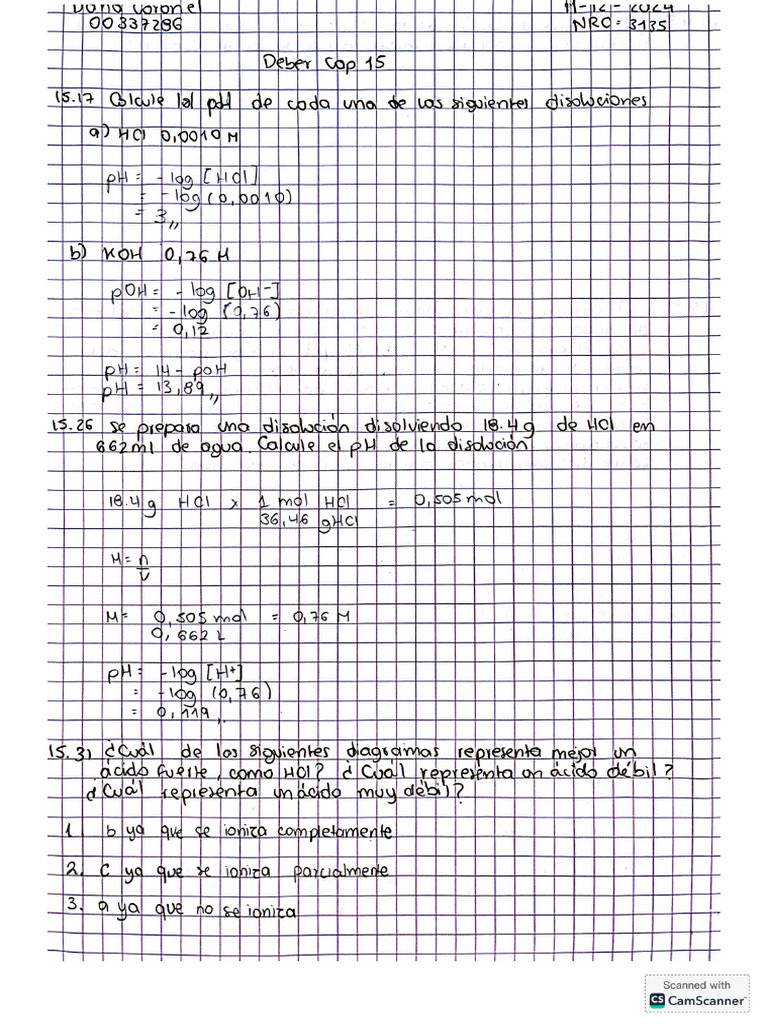 00337286
NRC = 3135
Deber Cap 15
15.17 Calcule el pH de cada una de las siguientes disoluciones
a) HCl 0,0010 M
pH = -log [HCl]
= -log (0,0010)
= 3,,
b) KOH 0,76 M
pOH = -log [OH-]
= -log (0,76)
= 0,12
pH = 14 - pOH
pH = 13,89,,
15.26 se prepara una disolución disolviendo 18.4g de HCl en
662ml de agua. Calcule el pH de la disolución
18.4g HCl x 1 mol HCl = 0,505 mol
36,46 gHCl
M = n
V
M = 0,505 mol = 0,76 M
0,662 L
pH = -log [H+]
= -log (0,76)
= 0,119,,
15.31 ¿Cuál de los siguientes diagramas representa mejor un
ácido fuerte, como HCl? ¿Cuál representa un ácido débil?
¿Cuál representa un ácido muy débil?
1. b ya que se ioniza completamente
2. C ya que se ioniza parcialmente
3. a ya que no se ioniza
Scanned with
CS CamScanner